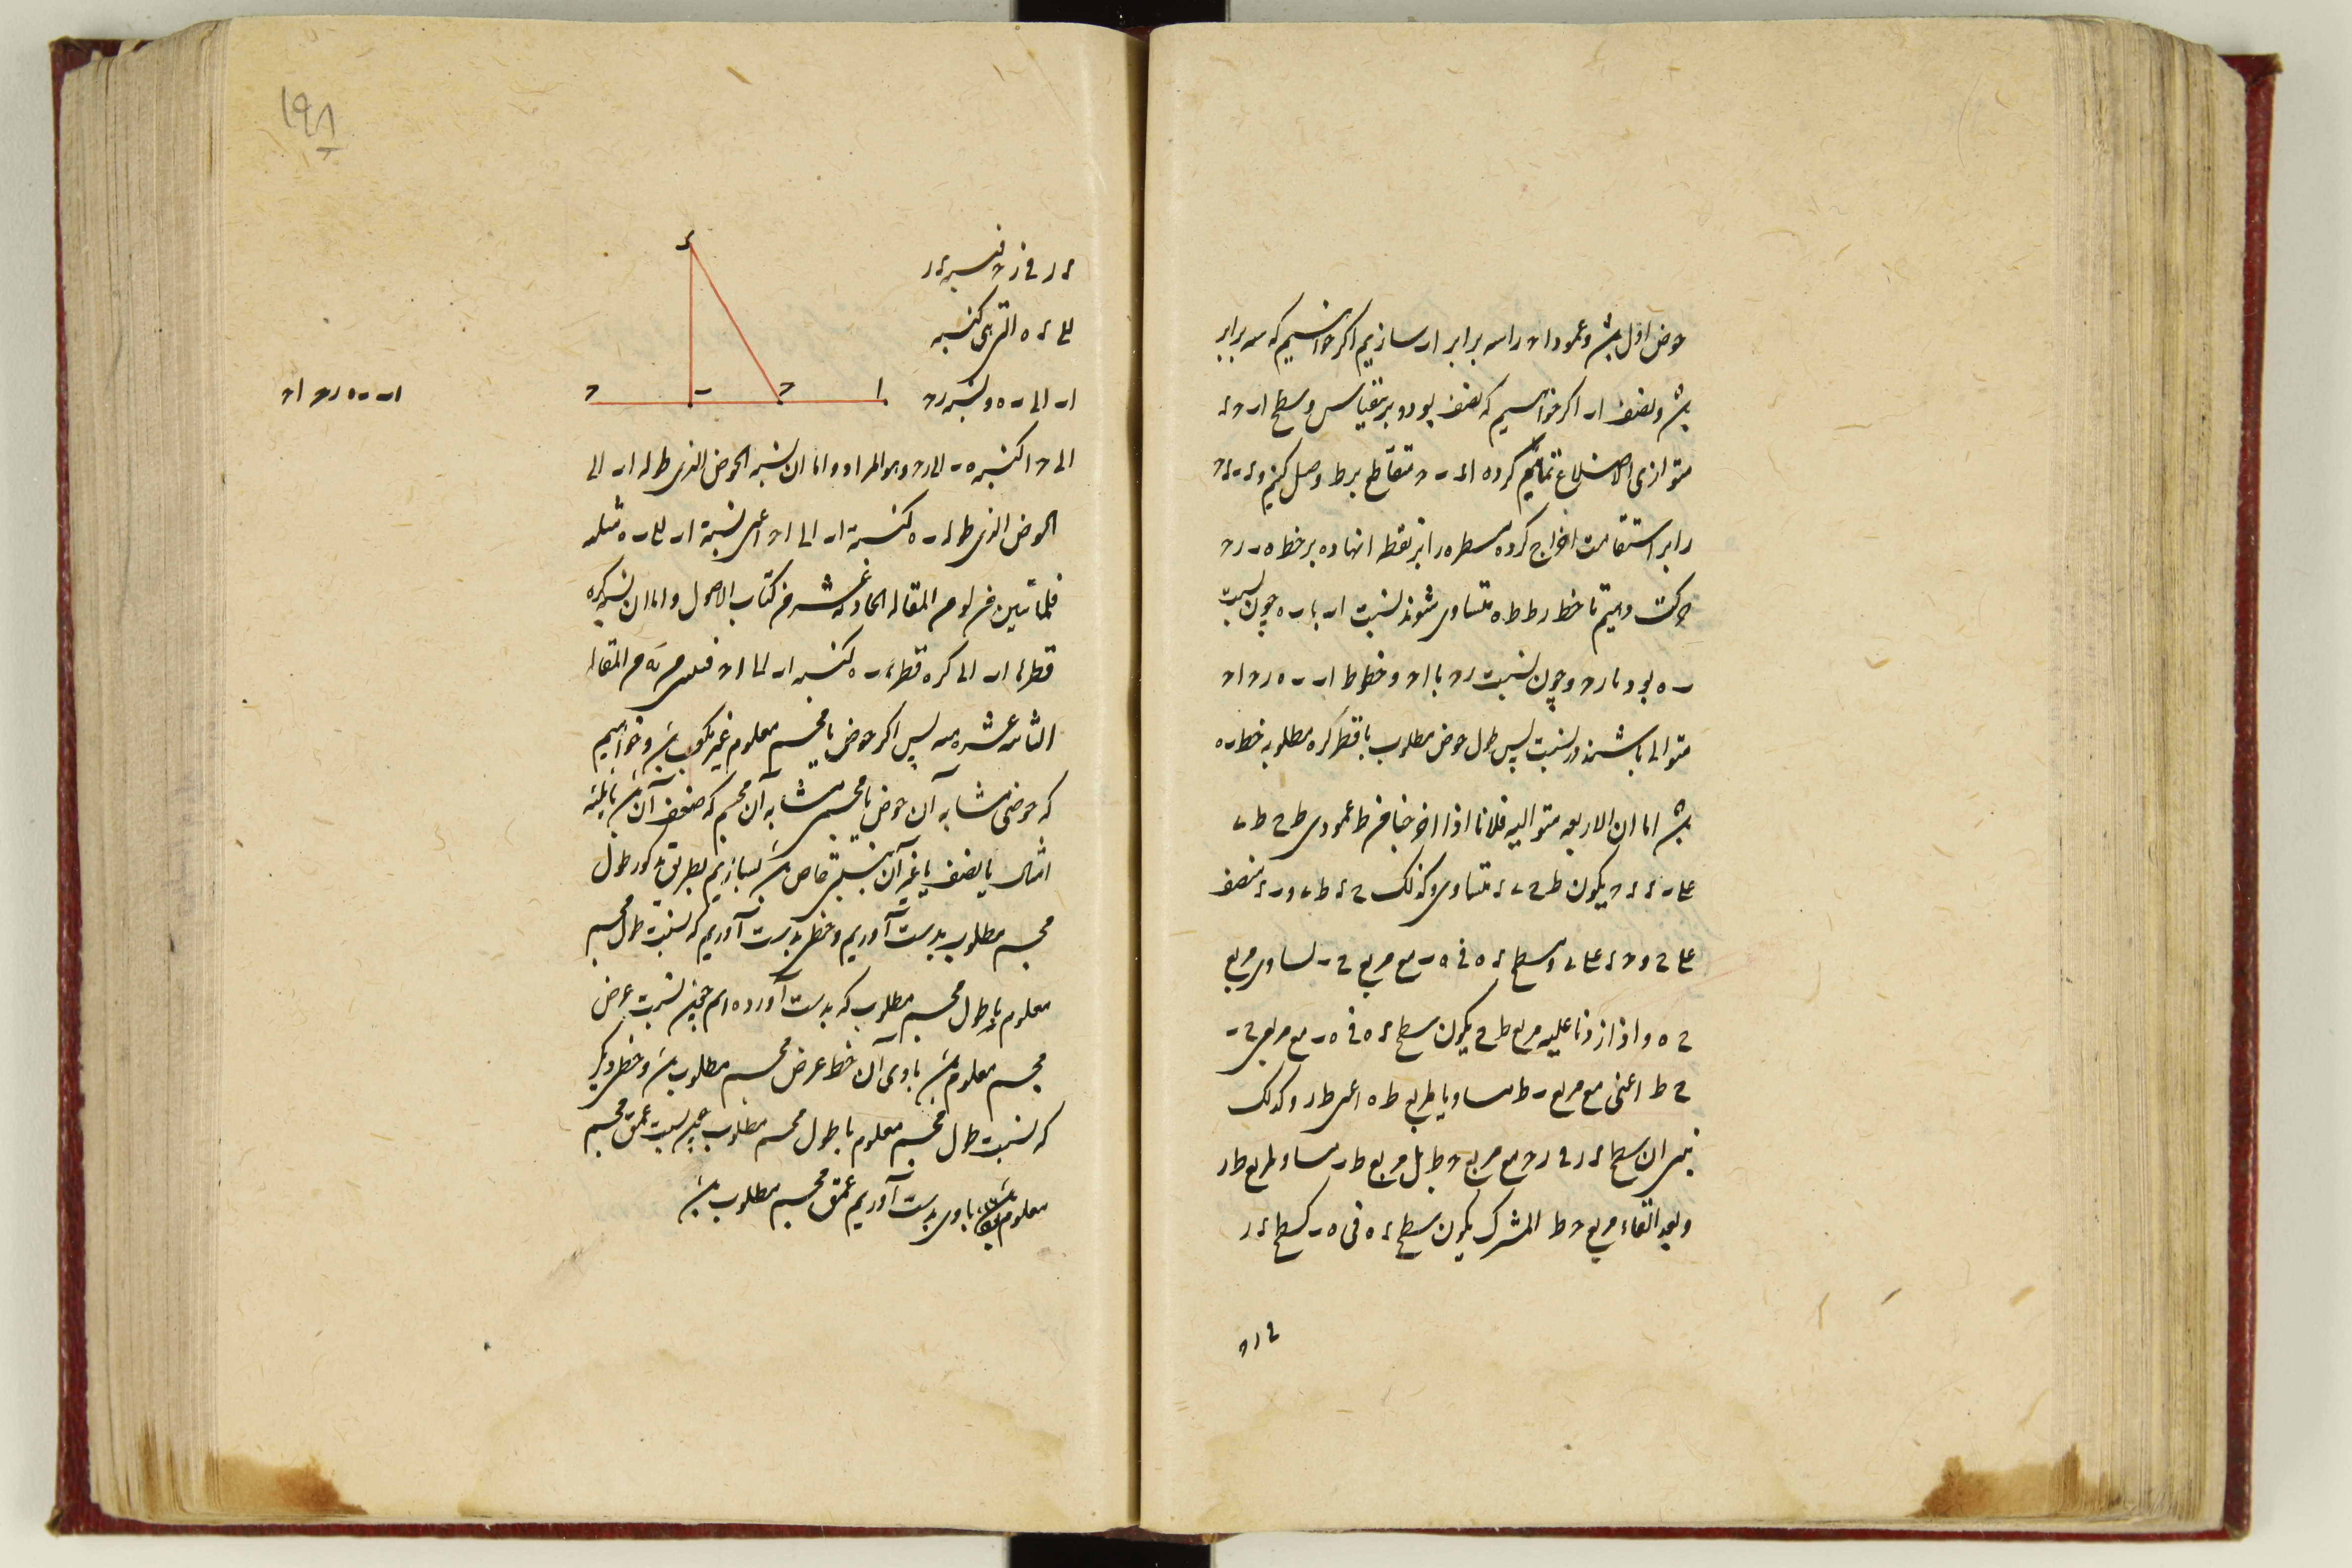 حوض اول باشد و عمود ا ح را سه برابر ا ب سازیم اگر خواهیم که سه برابر
باشد و نصف ا ب اگر خواهیم که نصف بود و بر این قیاس و سطح ا ب ح د
متوازی الاضلاع تمام کرده ا د ب ح متقاطع بر ط وصل کنیم و د ب د ح
را بر استقامت اخراج کرده مسطره را بر نقطه ا نهاده بر خط ه ب ر ح
حرکت دهیم تا خط ر ط ط ه متساوی شوند نسبت ا ب با ب ه چون نسبت
ب ه بود با ر ح و چون نسبت ر ح با ا ح و خطوط ا ب ب ه ر ح ا ح
متوالی باشند در نسبت پس طول حوض مطلوب یا قطر کره مطلوبه خط ب ه
باشد اما ان الاربعه متوالیه فلانا اذا اخرجنا من ط عمودی ط ح ط ی
علی ب د د ح یکون ط ح ی د متساوی و کذلک ح د ط ی و ب د منصف
علی ح و ح د علی ی و سطح د ه فی ه ب مع مربع ح ب یساوی مربع
ح ه و اذا زدنا علیه مربع ط ح یکون سطح د ه فی ه ب مع مربعی ح ب
ح ط اعنی مع مربع ب ط مساویا لمربع ط ه اعنی ط ر و کذلک
نبین ان سطح د ر فی ر ح مع مربع ح ط بل مربع ط ب مساو لمربع ط ر
و بعد القاء مربع ح ط المشترک یکون سطح د ه فی ه ب کسطح د ر
فی ر ح
۱۹۸
د ر فی ر ح فنسبه د ر
الی د ه التی هی کنسبه
ا ب الی ب ه و نسبه ر ح
د
ا ح ب ح
ا ب ب ه ر ح ا ح
الی ح ا کنسبه ه ب الی ر ح و هو المراد و اما ان نسبه الحوض الذی طوله ا ب الی
الحوض الذی طوله ب ه کنسبة ا ب الی ا ح اعنی نسبة ا ب الی ب ه مثلثه
فلما تبین من المقاله الحادیه عشر من کتاب الاصول و اما ان نسبه کره
قطرها ا ب الی کره قطرها ب ه کنسبه ا ب الی ا ح فلمن المقاله
الثانیه عشره منه پس اگر حوض یا مجسم معلوم غیر مکعب باشد و خواهیم
که حوضی مشابه آن حوض یا مجسمی مشابه آن مجسم که ضعف آن باشد یا ثلثه
امثال یا نصف یا غیر آن بنسبتی خاص باشد بسازیم بطریق مذکور طول
مجسم مطلوب بدست آوریم و خطی بدست آوریم که نسبت طول مجسم
معلوم با طول مجسم مطلوب که بدست آورده ایم چون نسبت عرض
مجسم معلوم باشد باوی آن خط عرض مجسم مطلوب باشد و خطی دیگر
که نسبت طول مجسم معلوم با طول مجسم مطلوب چون نسبت عمق مجسم
معلوم باشد باوی بدست آوریم عمق مجسم مطلوب باشد